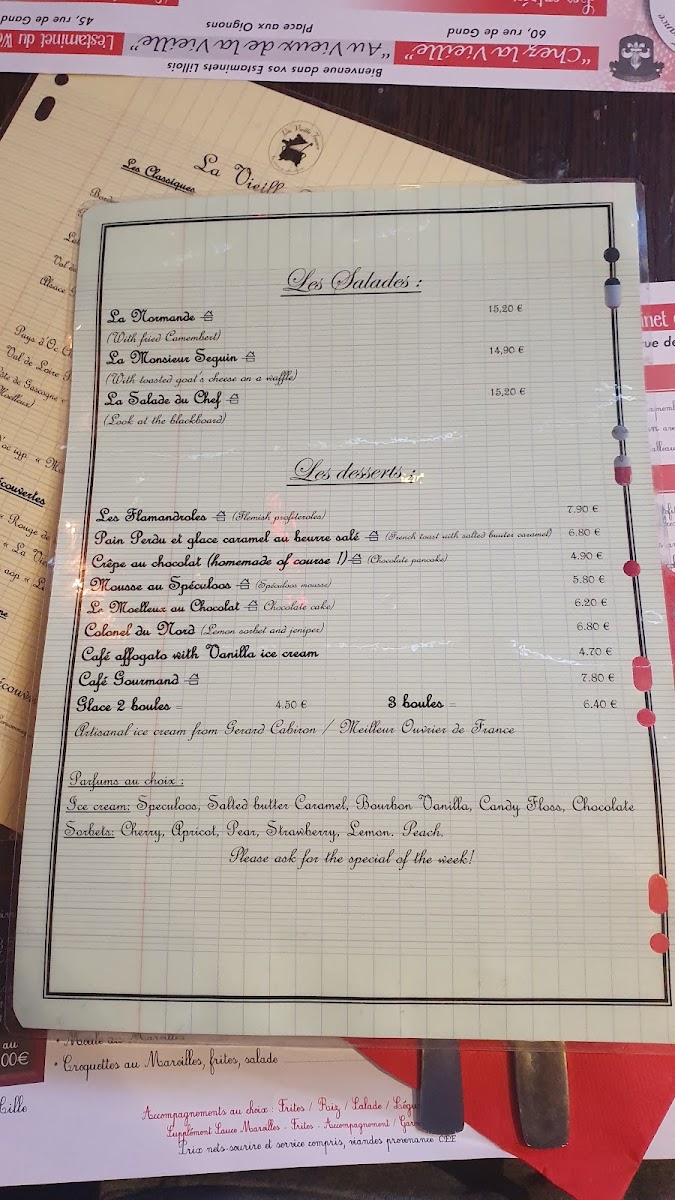 45, rue de Gand
Place aux Oignons
60, rue de Gand
"Au Vieux de la Vieille"
"Chez la Vieille"
Bienvenue dans vos Estaminets Lillois
La Vieille
Les Classiques
Les Salades :
La Normande 15,20 €
(With fried Camembert)
La Monsieur Seguin 14,90 €
(With toasted goat's cheese on a waffle)
La Salade du Chef 15,20 €
(Look at the blackboard)
Les desserts :
Les Flamandroles (Flemish profiteroles) 7.90 €
Pain Perdu et glace caramel au beurre salé (French toast with salted buuter caramel) 6.80 €
Crêpe au chocolat (homemade of course !) (Chocolate pancake) 4.90 €
Mousse au Spéculoos (Spéculoos mousse) 5.80 €
Le Moelleux au Chocolat Chocolate cake) 6.20 €
Colonel du Nord (Lemon sorbet and jeniper) 6.80 €
Café affogato with Vanilla ice cream 4.70 €
Café Gourmand 7.80 €
Glace 2 boules = 4.50 € 3 boules = 6.40 €
Artisanal ice cream from Gerard Cabiron / Meilleur Ouvrier de France
Parfums au choix :
Ice cream: Speculoos, Salted butter Caramel, Bourbon Vanilla, Candy Floss, Chocolate
Sorbets: Cherry, Apricot, Pear, Strawberry, Lemon. Peach.
Please ask for the special of the week!
au
00€
• Croquettes au Maroilles, frites, salade
Accompagnements au choix : Frites / Riz / Salade /
Supplément Sauce Maroilles - Frites - Accompagnement /
Prix nets-sourire et service compris, viandes provenance CEE